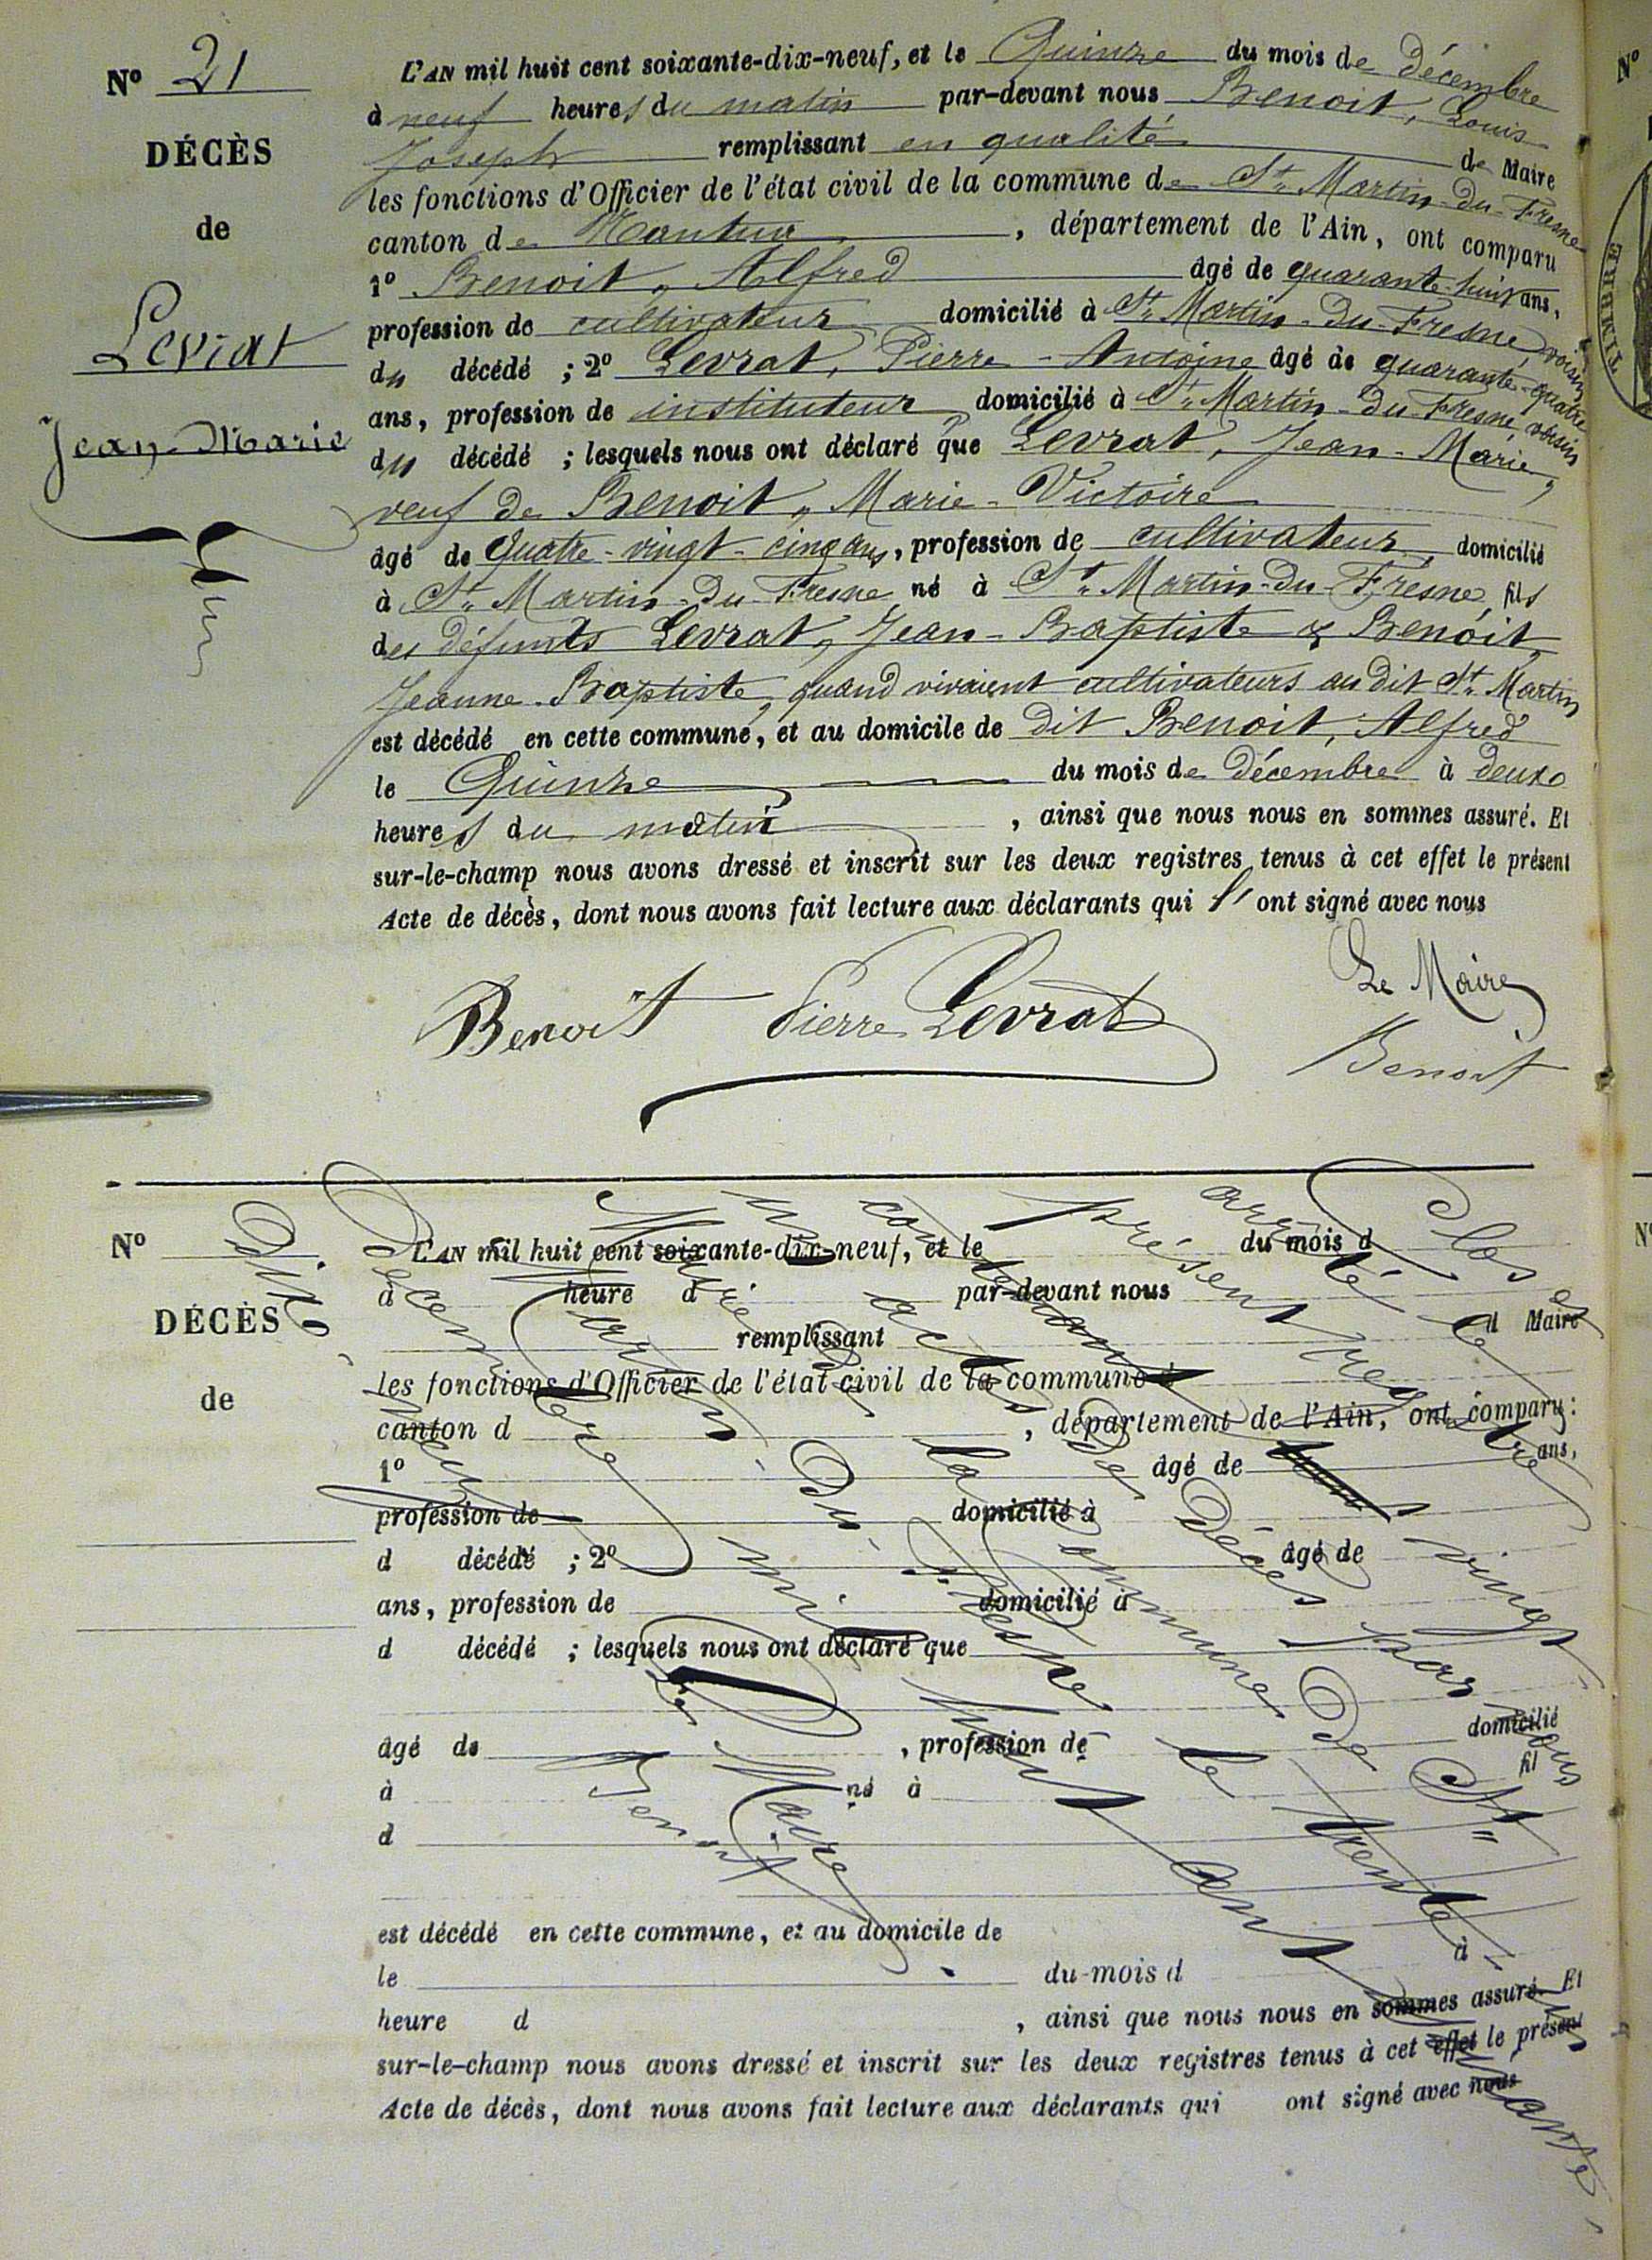 N° 21
DÉCÈS
de
Levrat
Jean-Marie
L'AN mil huit cent soixante-dix-neuf, et le Quinze du mois de décembre
à neuf heures du matin par-devant nous Benoit, Louis
Joseph remplissant en qualité de Maire
les fonctions d'Officier de l'état civil de la commune de St. Martin-du-Fresne
canton de Nantua, département de l'Ain, ont comparu
1° Benoit, Alfred âgé de quarante-huit ans,
profession de cultivateur domicilié à St. Martin-du-Fresne, voisin
du décédé ; 2° Levrat, Pierre-Antoine âgé de quarante-quatre
ans, profession de instituteur domicilié à St. Martin-du-Fresne, voisin
du décédé ; lesquels nous ont déclaré que Levrat, Jean-Marie,
veuf de Benoit, Marie-Victoire
âgé de Quatre-vingt-cinq ans, profession de cultivateur, domicilié
à St. Martin-du-Fresne né à St. Martin-du-Fresne, fils
des défunts Levrat, Jean-Baptiste & Benoit,
Jeanne-Baptiste, quand vivaient cultivateurs au dit St. Martin
est décédé en cette commune, et au domicile de dit Benoit, Alfred
le Quinze du mois de décembre à deux
heures du matin, ainsi que nous nous en sommes assuré. Et
sur-le-champ nous avons dressé et inscrit sur les deux registres tenus à cet effet le présent
Acte de décès, dont nous avons fait lecture aux déclarants qui l' ont signé avec nous
Le Maire
Benoit Pierre Levrat
Benoit
N°
DÉCÈS
de
L'AN mil huit cent soixante-dix-neuf, et le du mois d
à heure d par-devant nous
remplissant d Maire
les fonctions d'Officier de l'état civil de la commune d
canton d , département de l'Ain, ont comparu:
1° âgé de ans,
profession de domicilié à
d décédé ; 2° âgé de
ans, profession de domicilié à
d décédé ; lesquels nous ont déclaré que
âgé de , profession de domicilié
à né à fil
d
est décédé en cette commune, et au domicile de
le du mois d à
heure d , ainsi que nous nous en sommes assuré. Et
sur-le-champ nous avons dressé et inscrit sur les deux registres tenus à cet effet le présent
Acte de décès, dont nous avons fait lecture aux déclarants qui ont signé avec nous
Clos et
arrêté le
présent registre
contenant vingt-
un actes de Décès par nous
Maire de la commune de St.
Martin-du-Fresne le trente-un
Décembre mil huit cent soixante-
dix-neuf
Le Maire
Benoit
TIMBRE
N°